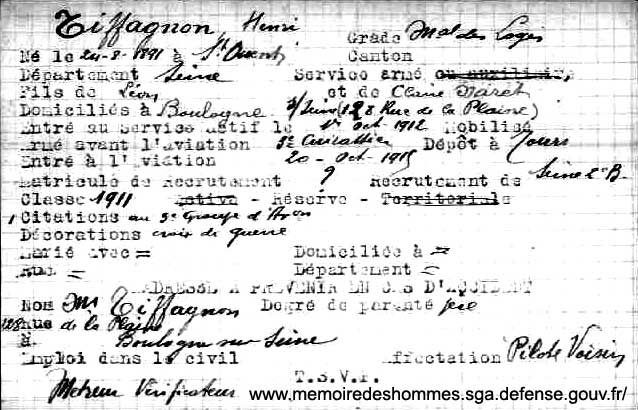 Tiffagnon Henri
Grade Mal des Logis
Né le 24-8-1891 à St Ouen
Canton
Département Seine Service armé ou auxiliaire,
Fils de Léon et de Claire
Domiciliés à Boulogne s/Seine (128 Rue de la Plaine)
Entré au Service actif le 1er Oct. 1912 Mobilisé
Armé avant l'aviation 5e Cuirassier Dépôt à Tours
Entré à l'aviation 20 - Oct - 1915
Matricule de Recrutement ? Recrutement de Seine 2e B.
Classe 1911 Active - Réserve - Territoriale
1 Citations au 5e Groupe d'Avon
Décorations croix de guerre
Marié avec = Domiciliée à =
Rue = Département =
ADRESSE A PREVENIR EN CAS D'ACCIDENT
Nom Mr Tiffagnon Degré de parenté père
128 Rue de la Plaine
à Boulogne sur Seine
Emploi dans le civil Affectation Pilote Voisin
T.S.V.P.
Metreur Vérificateur
www.memoiredeshommes.sga.defense.gouv.fr/